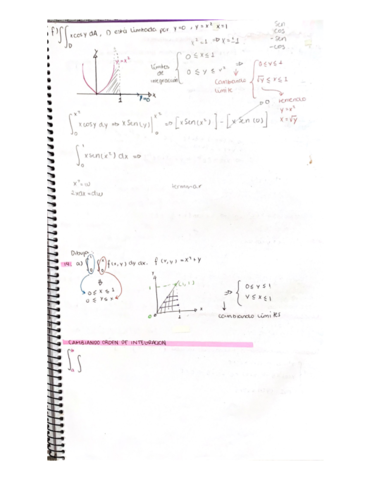 f) ∬_D x cos y dA, D está limitado por y=0, y=x² x=1
Sen
cos
-sen
-cos
x²=1 ⇒ y=1
y=x²
1
y=0
Límites de integración { 0 ≤ x ≤ 1
0 ≤ y ≤ x²
⇒ { 0 ≤ y ≤ 1
√y ≤ x ≤ 1
Cambiando Limit.
y=x²
x=√y
∫_0^{x²} x cos y dx ⇒ x Sen(y) |_0^{x²} ⇒ [x Sen(x²)] - [x Sen (0)]
0
∫_0^1 x sen(x²) dx ⇒
x²=u
2xdx=du
a) ∫∫ f(x,y) dy dx. f(x,y)=x²+y
0 ≤ x ≤ 1
0 ≤ y ≤ x
(1,1)
⇒ { 0 ≤ y ≤ 1
y ≤ x ≤ 1
cambiando LÍMITES
CAMBIANDO ORDEN DE INTEGRACIÓN
∫∫